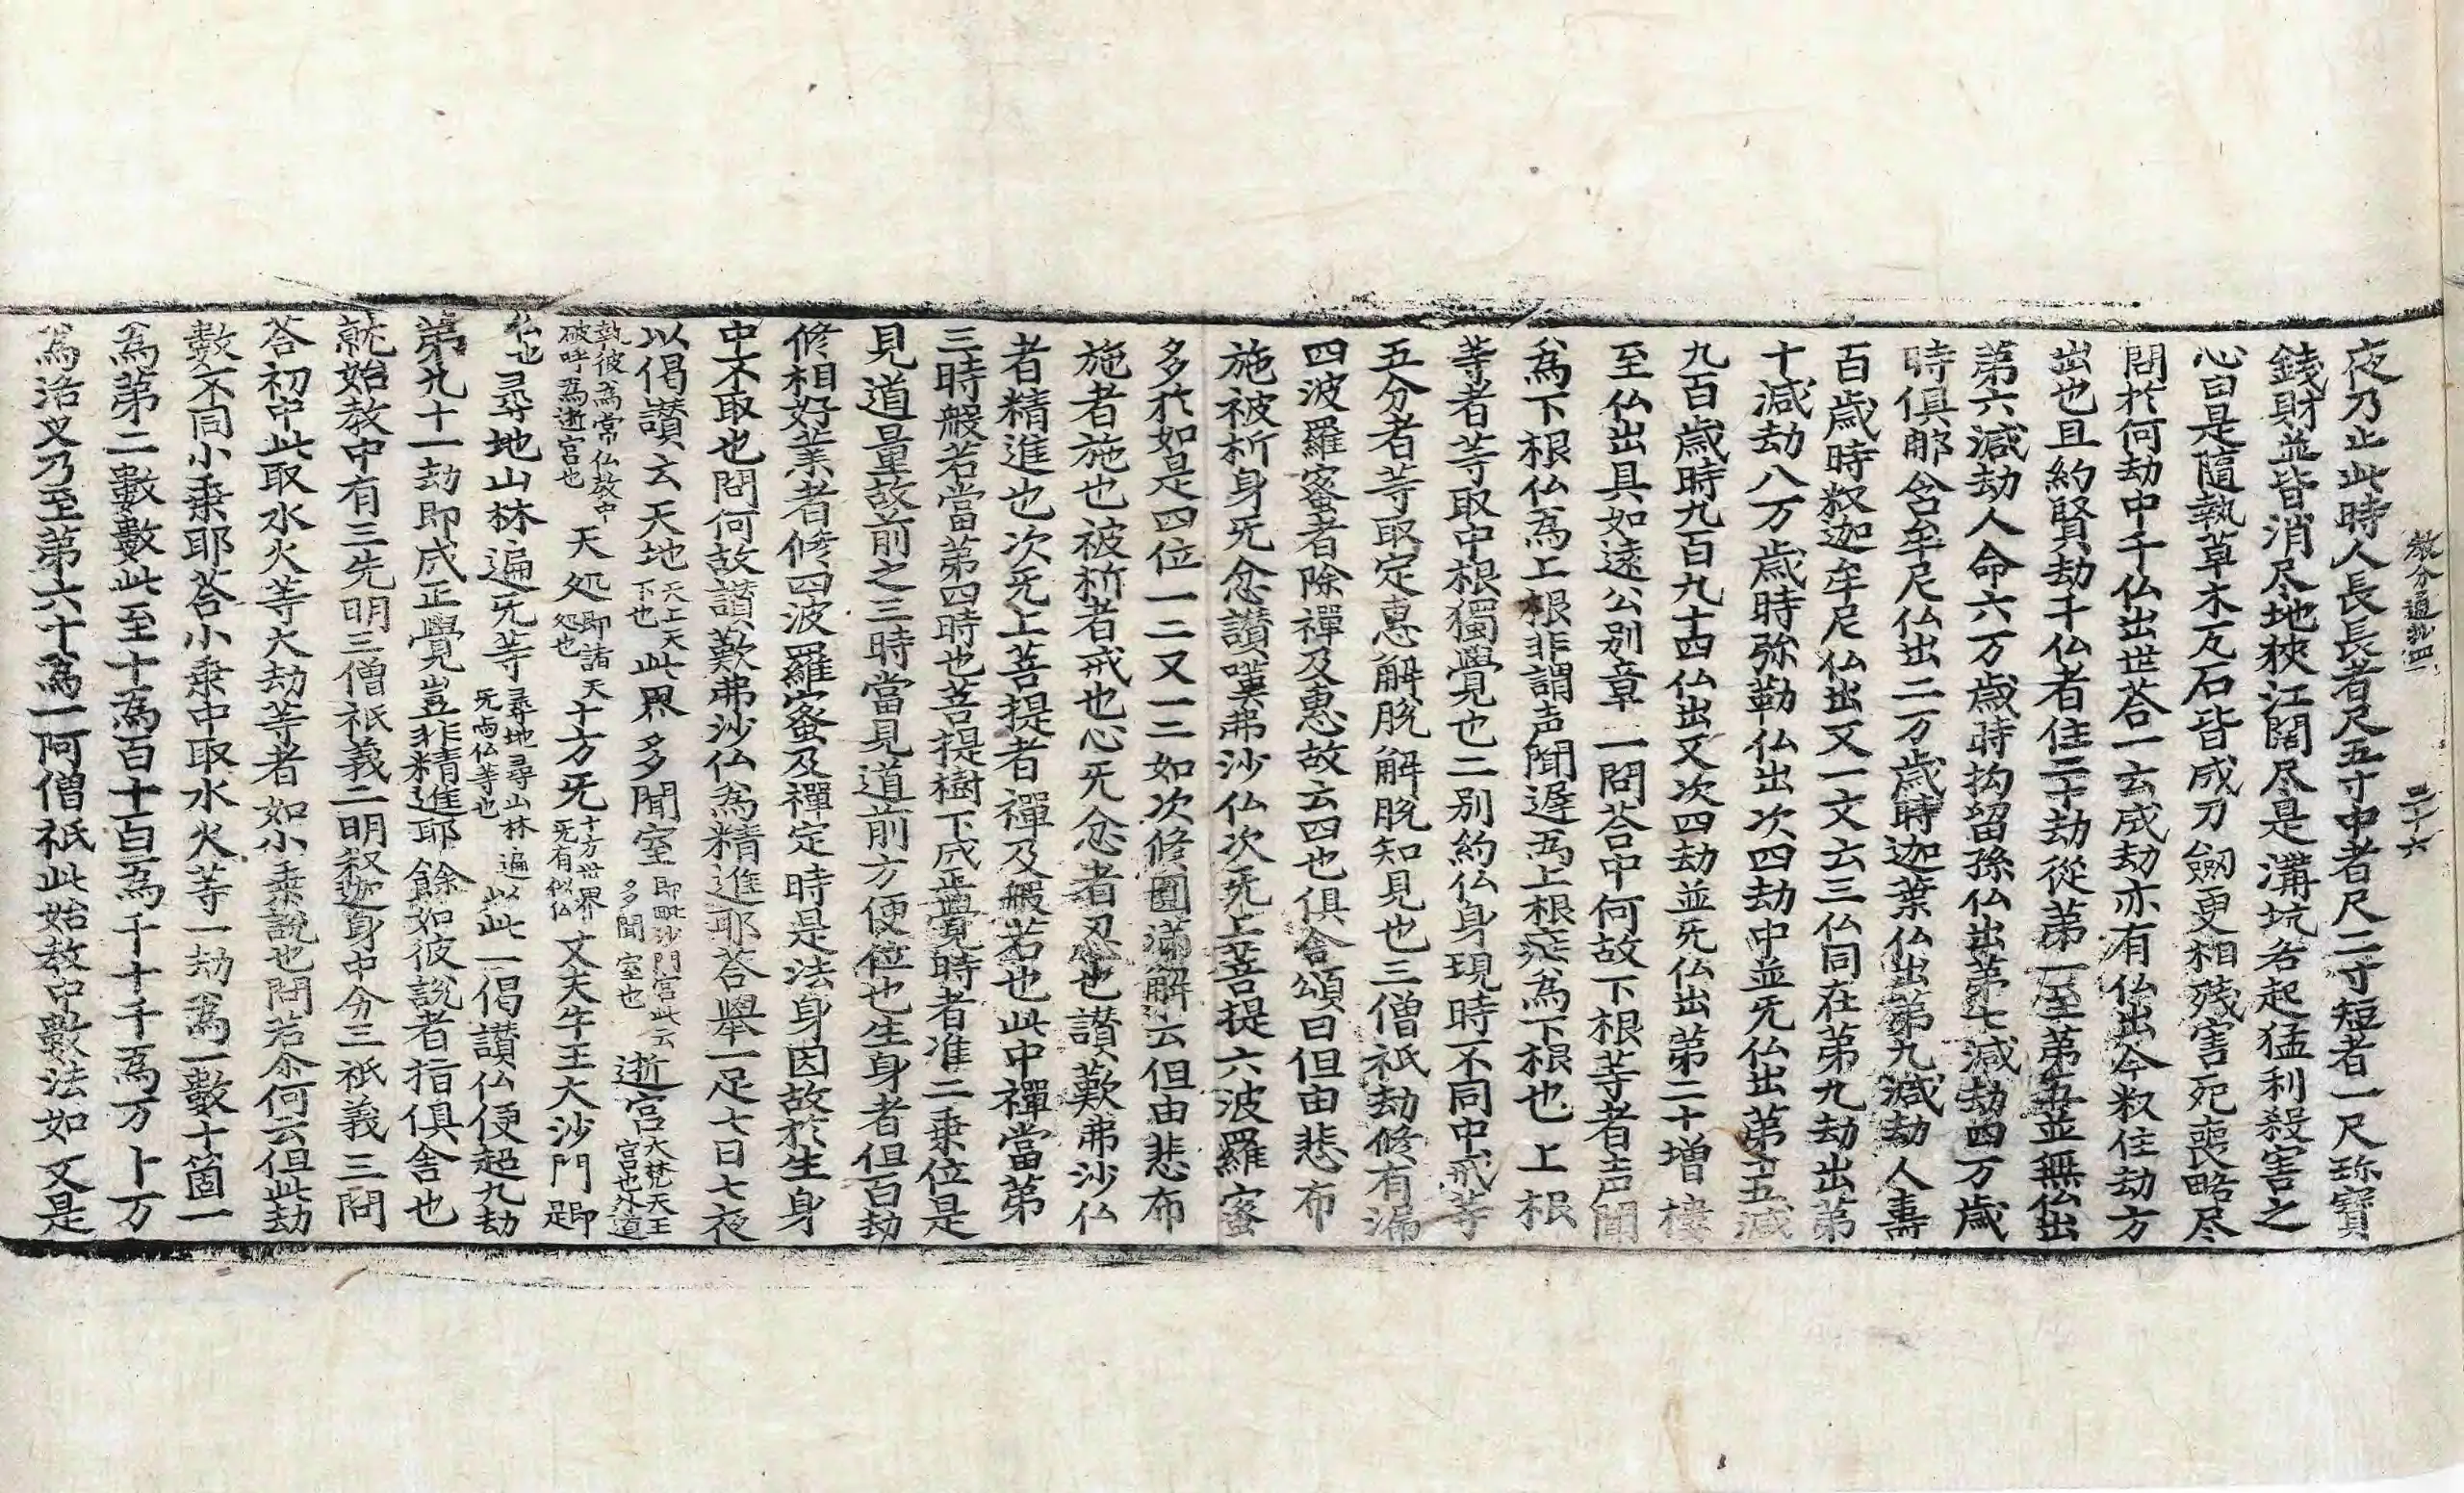 教分通鈔四　三十六
夜乃止此時人長長者尺五寸中者尺二寸短者一尺珎寶
錢財並皆消尽地狹江闊尽是溝坑各起猛利殺害之
心曰是隨執草木瓦石皆成刀劔更相残害死喪略尽
問於何劫中千仏出世荅一玄成劫亦有仏出今叙住劫方
出也且約賢劫千仏者住二十劫從第一至第五並無仏出
第六減劫人命六万歲時拘留孫仏出第七減劫四万歲
時俱那含牟尼仏出二万歲時迦葉仏出第九減劫人壽
百歲時叙迦牟尼仏出又一文云三仏同在第九劫出第
十減劫八万歲時弥勒仏出次四劫中並旡仏出第十五減
九百歲時九百九十四仏出又次四劫並旡仏出第二十增樓
至仏出具如遠公別章一問荅中何故下根等者声聞
為下根仏為上根非謂声聞遅為上根疾為下根也上根
等者等取中根獨覺也二別約仏身現時不同中戒等
五分者等取定惠解脫解脫知見也三僧祇劫修有漏
四波羅蜜者除禪及惠故云四也俱舍頌曰但由悲布
施被析身旡忿讃嘆弗沙仏次旡上菩提六波羅蜜
多於如是四位一二又一二如次修圓滿解云但由悲布
施者施也被析者戒也心旡忿者忍也讃歎弗沙仏
者精進也次旡上菩提者禪及般若也此中禪當第
三時般若當第四時也菩提樹下成正覺時者准二乘位是
見道量故前之三時當見道前方便位也生身者但百劫
修相好業者修四波羅蜜及禪定時是法身因故於生身
中不取也問何故讃歎弗沙仏為精進耶荅舉一足七日七夜
以偈讃云天地天上天下也此界多聞室即毗沙門宮此云多聞室也逝宮大梵天王宮也外道
執彼為常仏教中破呼為逝宮也天処即諸天処也十方旡十方世界旡有似仏丈夫牛王大沙門即
仏也尋地山林遍旡等尋地尋山林遍旡尚仏等也以此一偈讃仏便超九劫
第九十一劫即成正覺豈非精進耶餘如彼說者指俱舍也
就始教中有三先明三僧祇義二明叙迦身中分三祇義三問
荅初中此取水火等大劫等者如小乘說也問若尒何云但此劫
數不同小乘耶荅小乘中取水火等一劫為一數十箇一
為第二數數此至十為百十百為千十千為万十万
為洛叉乃至第六十為一阿僧祇此始教中數法如文是